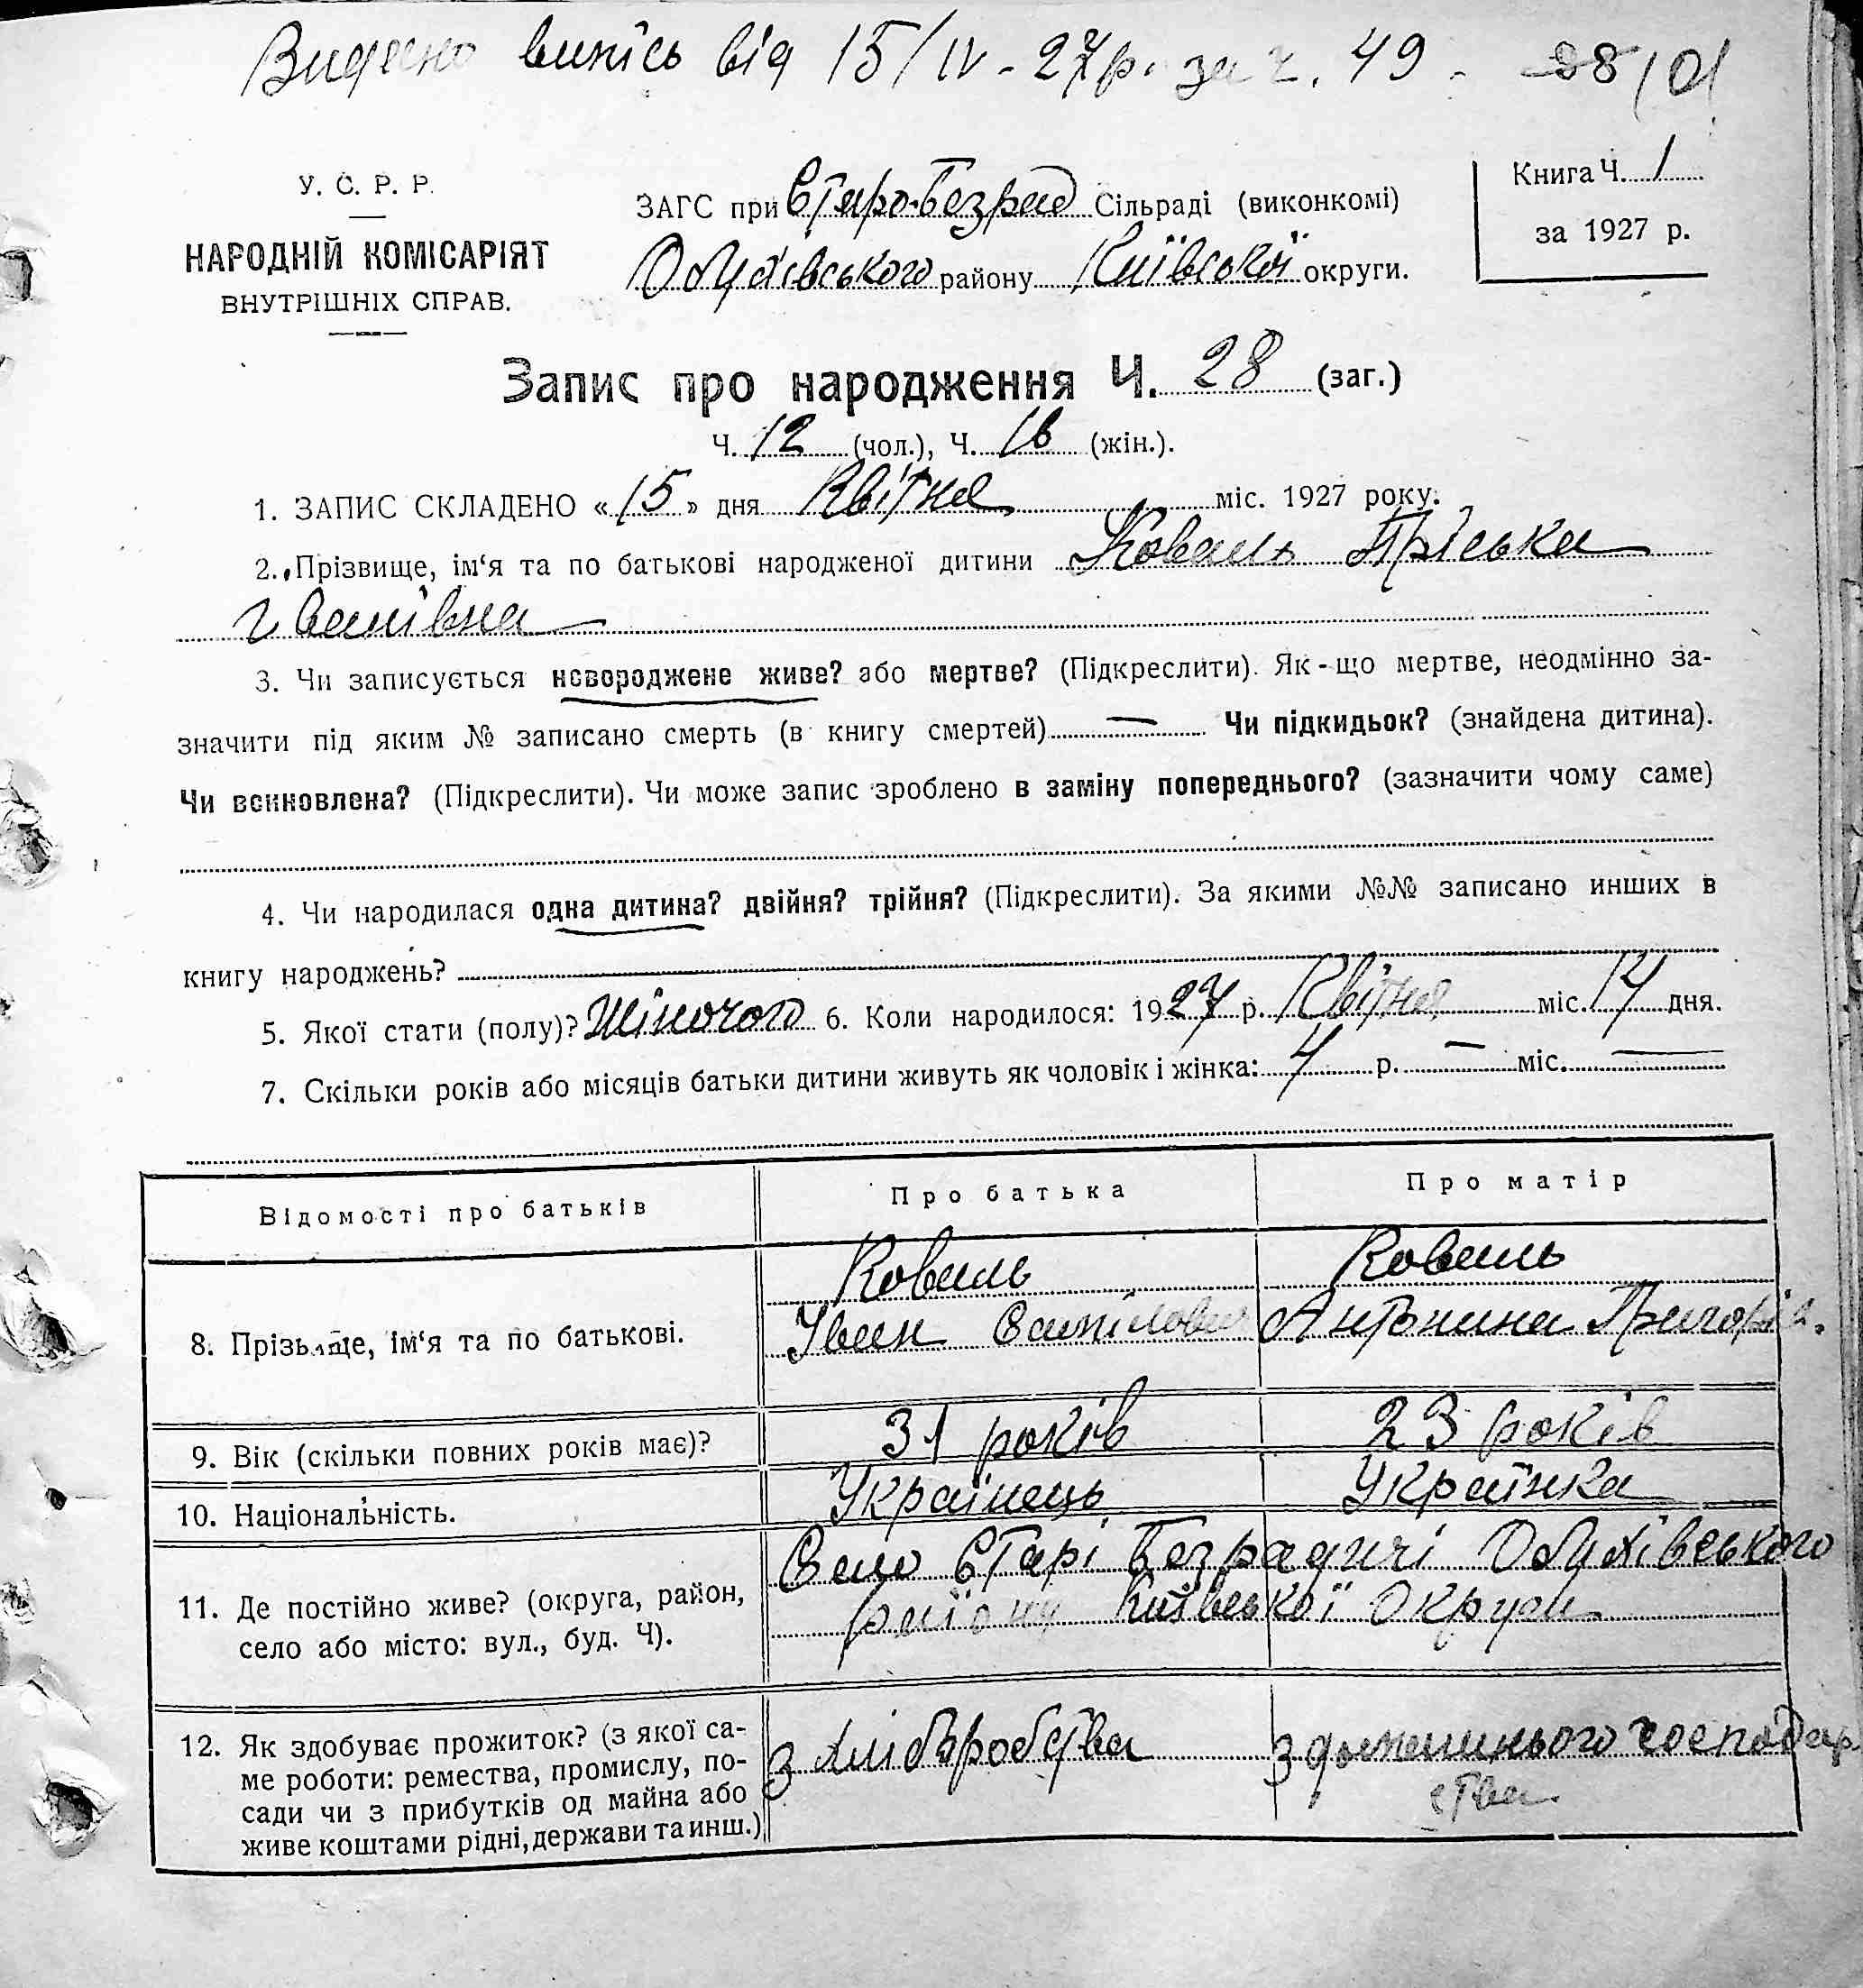 Видано випісь від 15/IV - 27р. за ч. 49 -
У. С. Р. Р.
НАРОДНІЙ КОМІСАРІЯТ
ВНУТРІШНІХ СПРАВ.
ЗАГС при Старо-Безрад Сільраді (виконкомі)
Обухівського району Київської округи.
Книга Ч. 1
за 1927 р.
Запис про народження Ч. 28 (заг.)
Ч. 12 (чол.), Ч. 16 (жін.).
1. ЗАПИС СКЛАДЕНО «15» дня Квітня міс. 1927 року.
2. Прізвище, ім‘я та по батькові народженої дитини Коваль Пріська
Іванівна
3. Чи записується новороджене живе? або мертве? (Підкреслити). Як-що мертве, неодмінно за-
значити під яким № записано смерть (в книгу смертей) — Чи підкидьок? (знайдена дитина).
Чи всиновлена? (Підкреслити). Чи може запис зроблено в заміну попереднього? (зазначити чому саме)
4. Чи народилася одна дитина? двійня? трійня? (Підкреслити). За якими №№ записано инших в
книгу народжень?
5. Якої стати (полу)? Жіночого 6. Коли народилося: 1927 р. Квітня міс. 14 дня.
7. Скільки років або місяців батьки дитини живуть як чоловік і жінка: 4 р. — міс. —
Відомості про батьків Про батька Про матір
Коваль Коваль
8. Прізвище, ім‘я та по батькові. Іван Антонина Григорів.
9. Вік (скільки повних років має)? 31 років 23 років
10. Національність. Українець Українка
11. Де постійно живе? (округа, район, Село Старі Безрадичі Обухівського
село або місто: вул., буд. Ч). району Київської Округи
12. Як здобуває прожиток? (з якої са- з хліборобства з домашнього господар
ме роботи: ремества, промислу, по- ства
сади чи з прибутків од майна або
живе коштами рідні, держави та инш.)